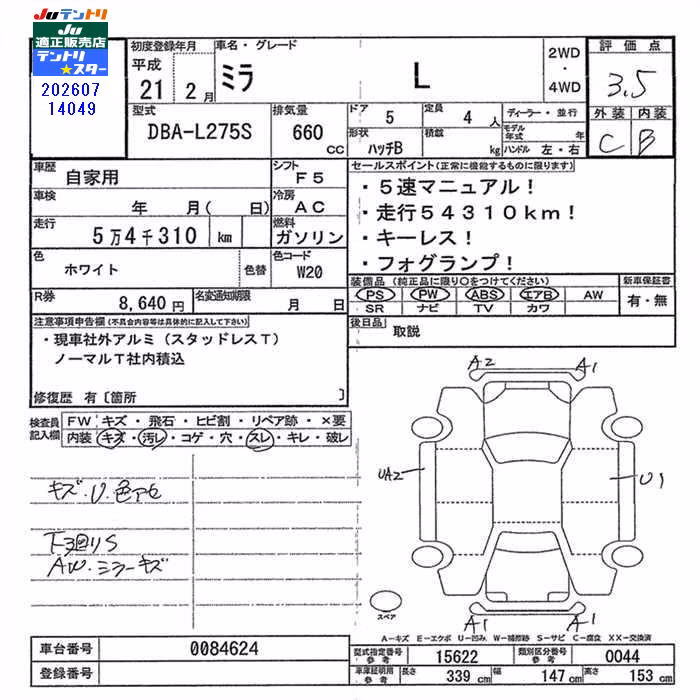 Juテントリ
Ju
適正販売店
テントリ
★スター
202607
14049
初度登録年月
平成
21 2 月
車名・グレード
ミラ L
2WD
・
4WD
評価点
3.5
外装 内装
C B
型式
DBA-L275S
排気量
660 CC
ドア 5
形状 ハッチB
定員 4 人
積載 kg
ディーラー・並行
モデル年式 年
ハンドル 左・右
車歴
自家用
シフト
F5
車検
年 月( 日)
冷房
AC
走行
5万4千310 km
燃料
ガソリン
色
ホワイト
色替
色コード
W20
R券
8,640 円
名変通知期限
月 日
セールスポイント(正常に機能するものに限ります)
・5速マニュアル!
・走行54310km!
・キーレス!
・フォグランプ!
装備品 (純正品に限り○をつけてください)
PS PW ABS エアB AW
SR ナビ TV カワ
新車保証書
有・無
後日品
取説
注意事項申告欄(不具合内容等は具体的に記入して下さい)
・現車社外アルミ(スタッドレスT)
ノーマルT社内積込
修復歴 有〔箇所 〕
検査員
記入欄
FW キズ・飛石・ヒビ割・リペア跡・×要
内装 キズ・汚レ・コゲ・穴・スレ・キレ・破レ
キズ.U.色アセ
下回りS
AW.ミラーキズ
A2 A1
UA2 U1
A1 A1
スペア
A−キズ E−エクボ U−凹み W−補修跡 S−サビ C−腐食 XX−交換済
車台番号
0084624
登録番号
型式指定番号
参考
15622
類別区分番号
参考
0044
車庫証明用
参考
長さ 339 cm 幅 147 cm 高さ 153 cm